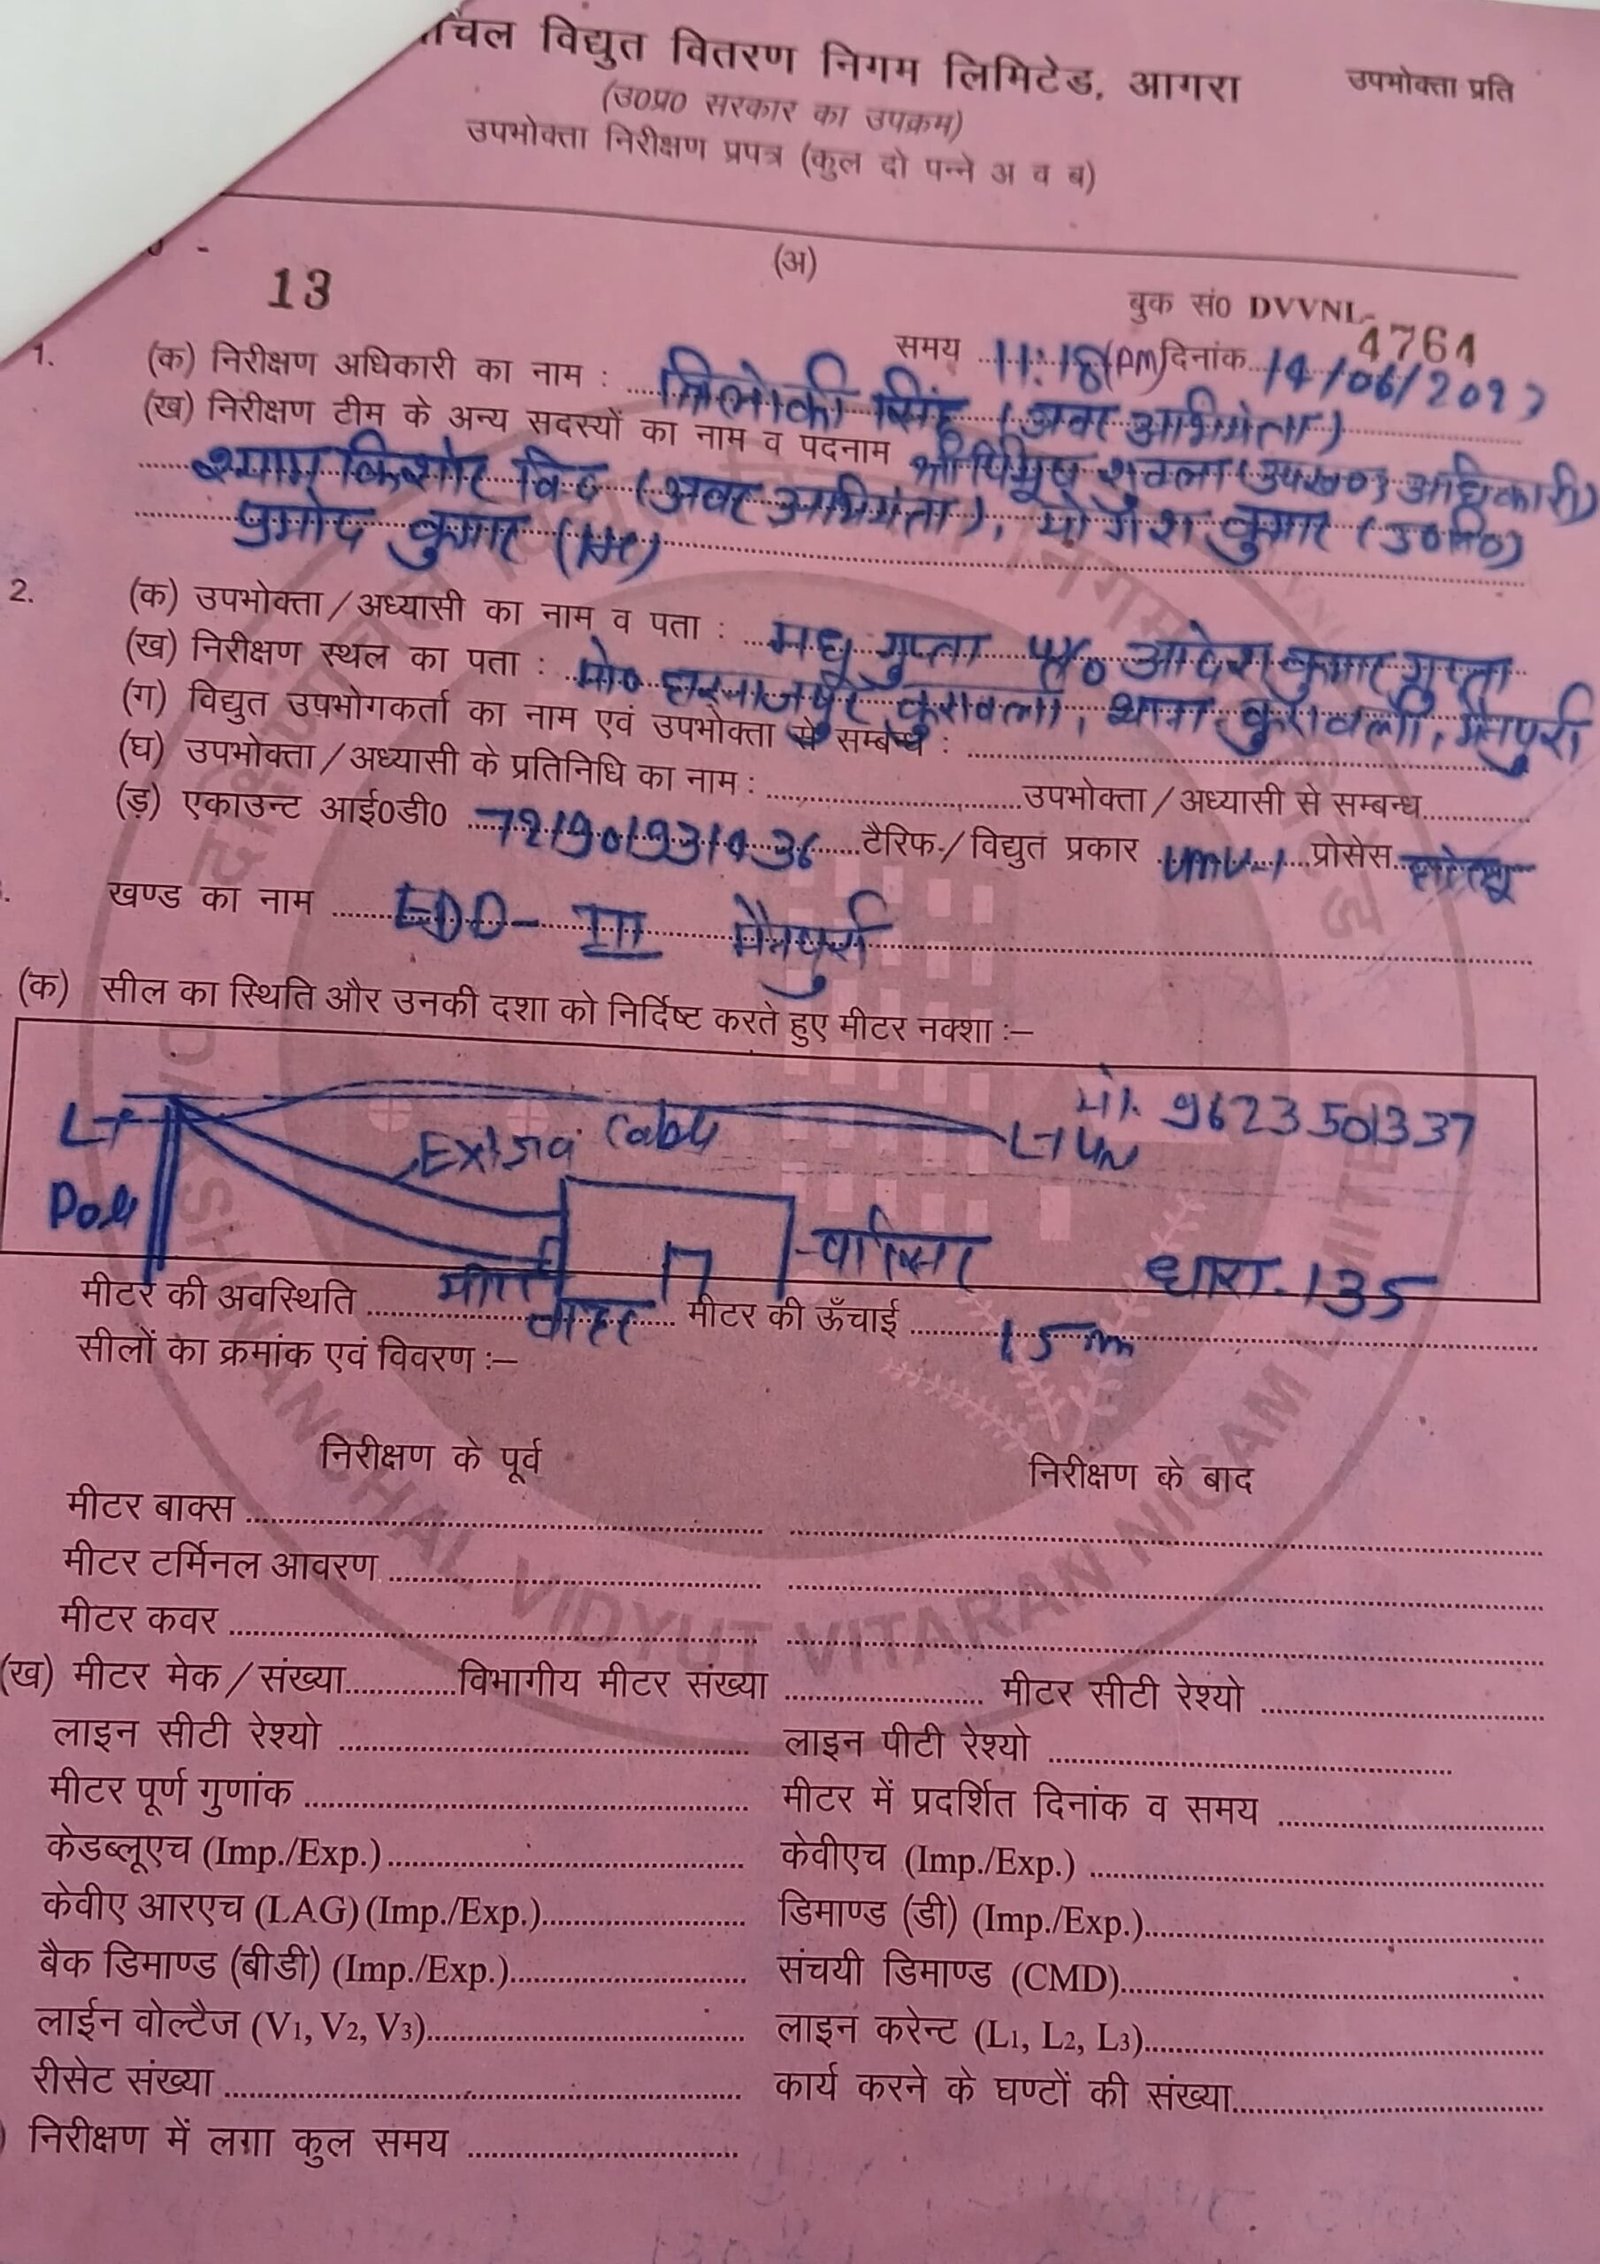 ांचल विद्युत वितरण निगम लिमिटेड, आगरा
उपभोक्ता प्रति
(उ0प्र0 सरकार का उपक्रम)
उपभोक्ता निरीक्षण प्रपत्र (कुल दो पन्ने अ व ब)
(अ)
13
बुक सं0 DVVNL-
4764
समय 11:18 (PM) दिनांक 14/06/202
1. (क) निरीक्षण अधिकारी का नाम : त्रिलोकी सिंह (अवर अभियंता)
(ख) निरीक्षण टीम के अन्य सदस्यों का नाम व पदनाम श्री शुक्ला (उपखण्ड अधिकारी)
श्याम किशोर (अवर अभियंता), योगेश कुमार
प्रमोद कुमार
2. (क) उपभोक्ता/अध्यासी का नाम व पता : मधु गुप्ता आदेश कुमार गुप्ता
(ख) निरीक्षण स्थल का पता : मो0 कुरावली, थाना कुरावली, मैनपुरी
(ग) विद्युत उपभोगकर्ता का नाम एवं उपभोक्ता से सम्बन्ध :
(घ) उपभोक्ता/अध्यासी के प्रतिनिधि का नाम : उपभोक्ता/अध्यासी से सम्बन्ध
(ड़) एकाउन्ट आई0डी0 टैरिफ/विद्युत प्रकार LMV-1 प्रोसेस घरेलू
खण्ड का नाम EDD- III मैनपुरी
(क) सील का स्थिति और उनकी दशा को निर्दिष्ट करते हुए मीटर नक्शा :–
मो. 9623501337
LT
Extra Cable
LT
Pole
परिसर
धारा. 135
मीटर की अवस्थिति बाहर मीटर की ऊँचाई 1.5m
सीलों का क्रमांक एवं विवरण :–
निरीक्षण के पूर्व निरीक्षण के बाद
मीटर बाक्स
मीटर टर्मिनल आवरण
मीटर कवर
(ख) मीटर मेक/संख्या विभागीय मीटर संख्या मीटर सीटी रेश्यो
लाइन सीटी रेश्यो लाइन पीटी रेश्यो
मीटर पूर्ण गुणांक मीटर में प्रदर्शित दिनांक व समय
केडब्लूएच (Imp./Exp.) केवीएच (Imp./Exp.)
केवीए आरएच (LAG) (Imp./Exp.) डिमाण्ड (डी) (Imp./Exp.)
बैक डिमाण्ड (बीडी) (Imp./Exp.) संचयी डिमाण्ड (CMD)
लाईन वोल्टैज (V1, V2, V3) लाइन करेन्ट (L1, L2, L3)
रीसेट संख्या कार्य करने के घण्टों की संख्या
निरीक्षण में लगा कुल समय
DAKSHINANCHAL VIDYUT VITARAN NIGAM LIMITED